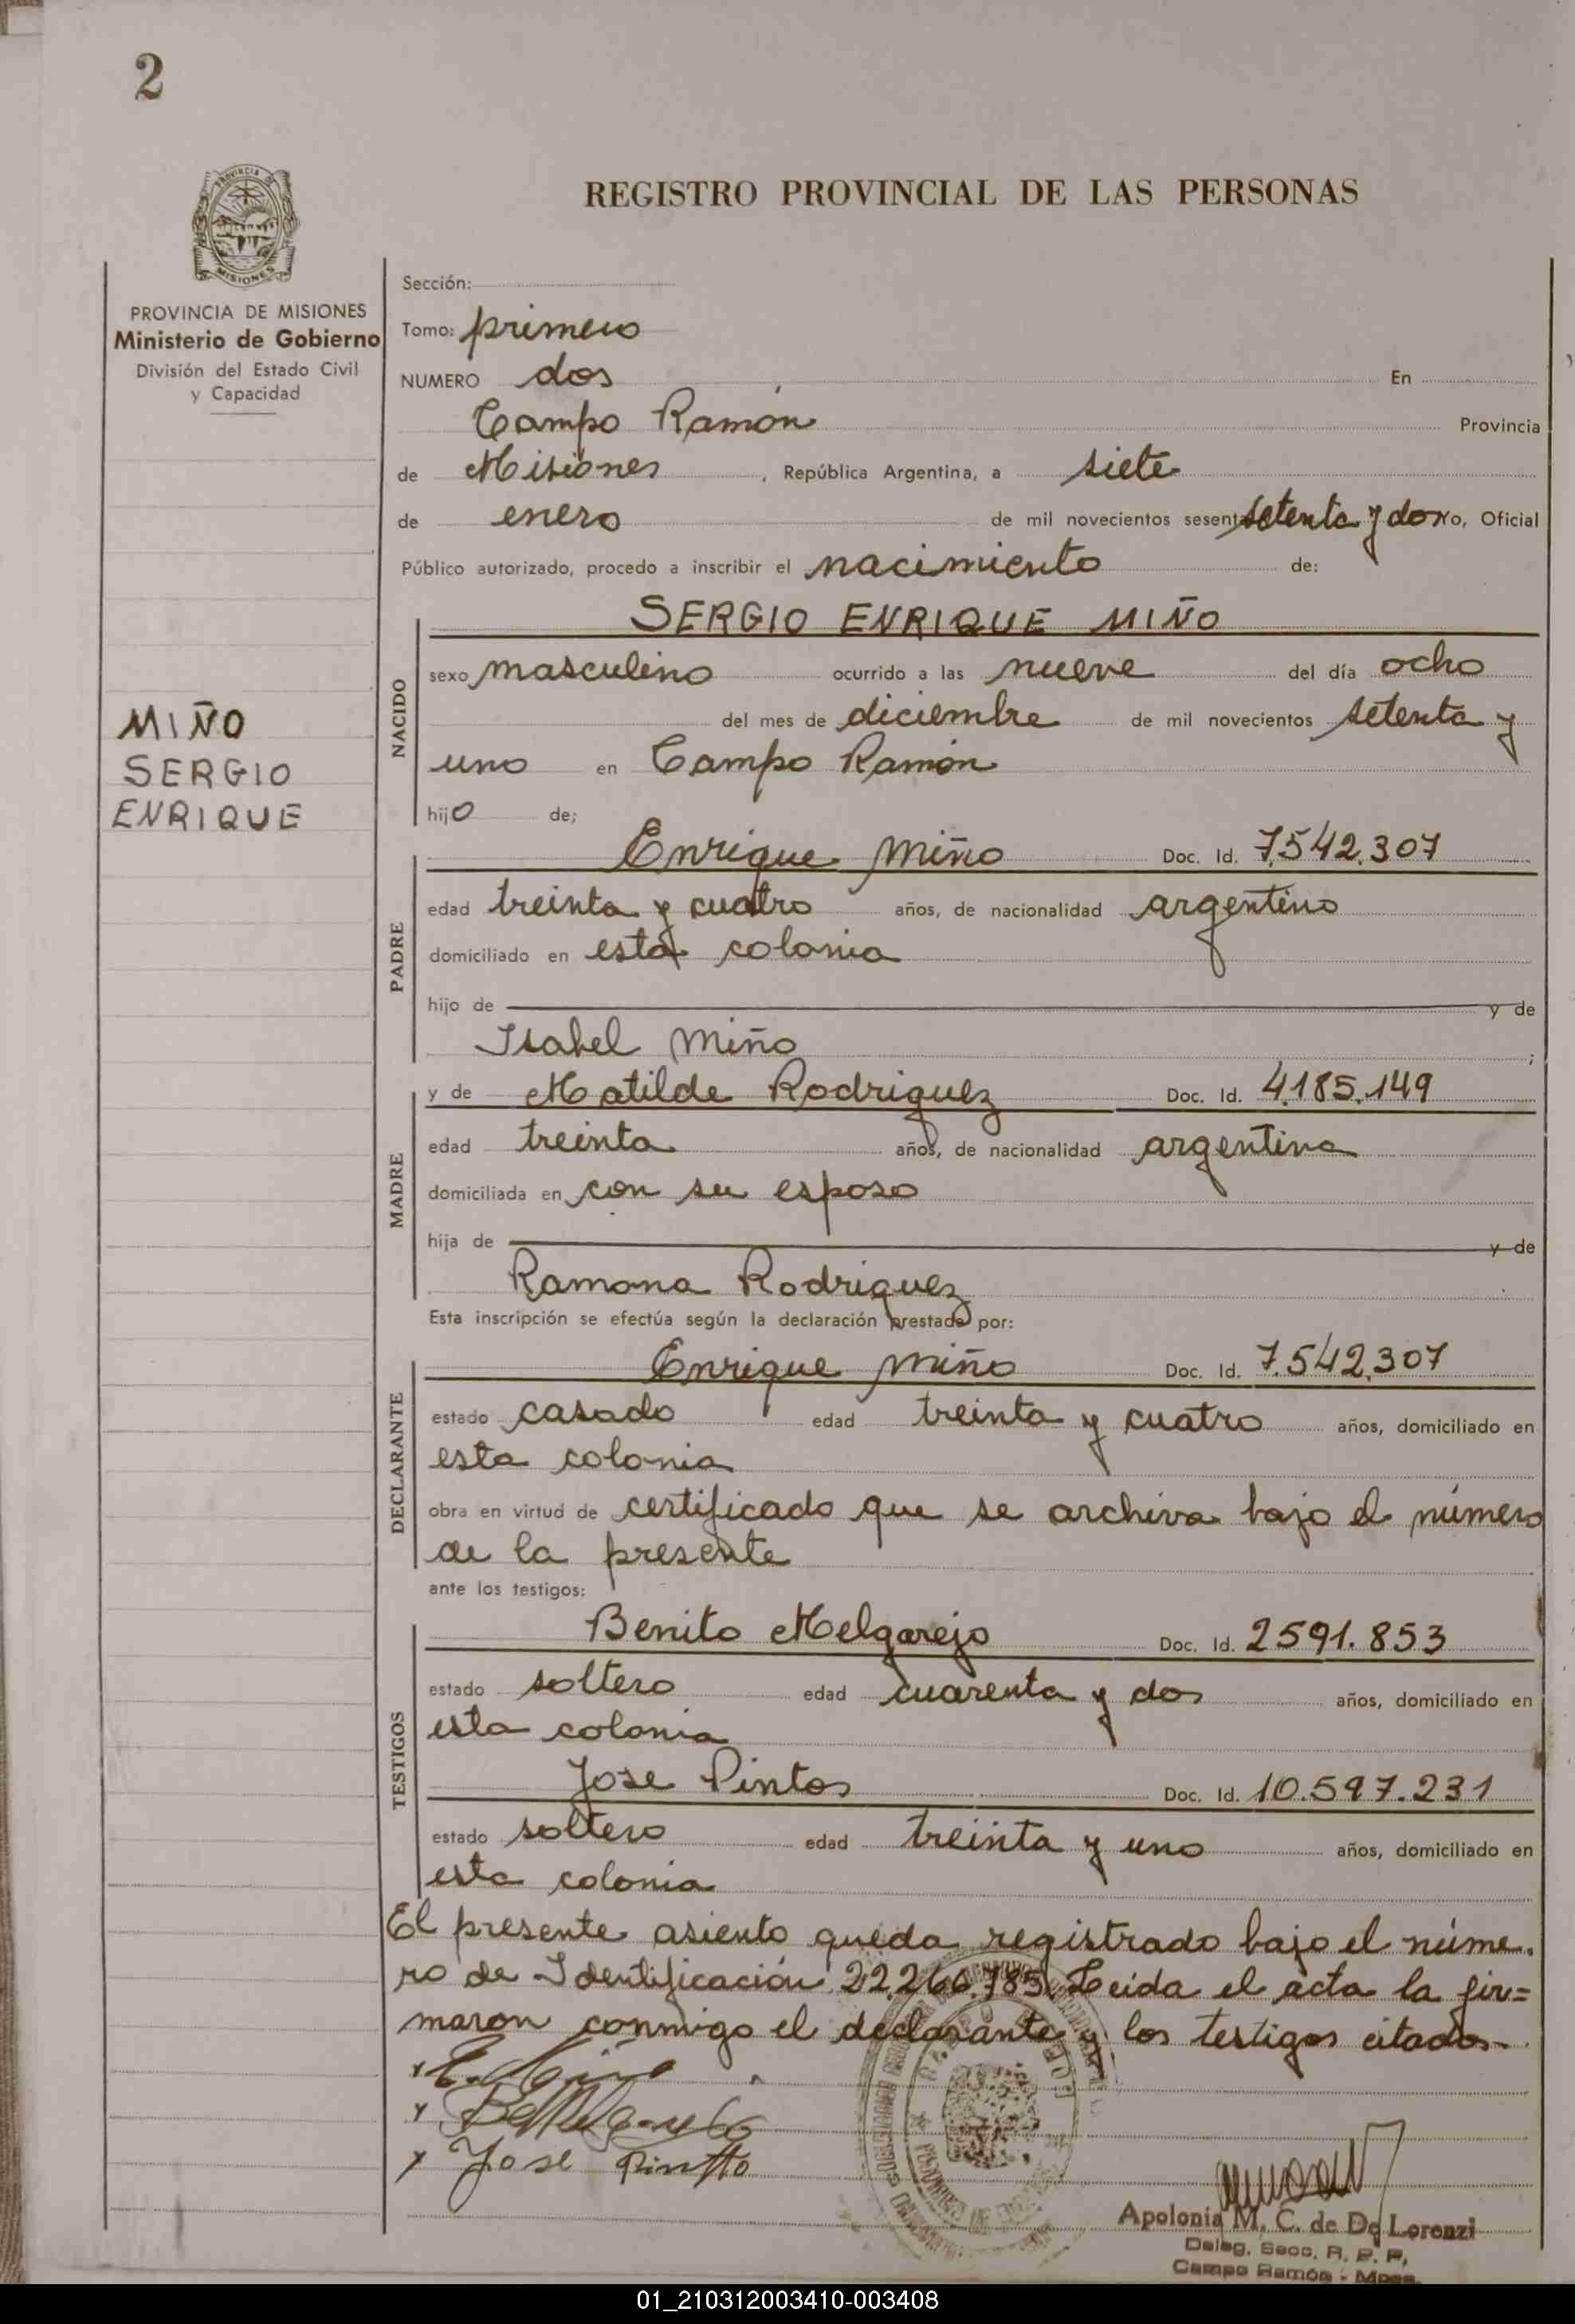 2
REGISTRO PROVINCIAL DE LAS PERSONAS
PROVINCIA DE
MISIONES
PROVINCIA DE MISIONES
Ministerio de Gobierno
División del Estado Civil
y Capacidad
MIÑO
SERGIO
ENRIQUE
Sección:
Tomo: primero
NUMERO dos En
Campo Ramón Provincia
de Misiones, República Argentina, a siete
de enero de mil novecientos sesent setenta y dos yo, Oficial
Público autorizado, procedo a inscribir el nacimiento de:
SERGIO ENRIQUE MIÑO
NACIDO
sexo masculino ocurrido a las nueve del día ocho
del mes de diciembre de mil novecientos setenta y
uno en Campo Ramón
hijo de;
PADRE
Enrique Miño Doc. Id. 7.542.307
edad treinta y cuatro años, de nacionalidad argentino
domiciliado en esta colonia
hijo de y de
Isabel Miño ;
MADRE
y de Matilde Rodriguez Doc. Id. 4.185.149
edad treinta años, de nacionalidad argentina
domiciliada en con su esposo
hija de y de
Ramona Rodriguez
Esta inscripción se efectúa según la declaración prestada por:
DECLARANTE
Enrique Miño Doc. Id. 7.542.307
estado casado edad treinta y cuatro años, domiciliado en
esta colonia
obra en virtud de certificado que se archiva bajo el número
de la presente
ante los testigos:
TESTIGOS
Benito Melgarejo Doc. Id. 2591.853
estado soltero edad cuarenta y dos años, domiciliado en
esta colonia
Jose Pintos Doc. Id. 10.597.231
estado soltero edad treinta y uno años, domiciliado en
esta colonia
El presente asiento queda registrado bajo el núme-
ro de Identificación 22.266.785. Leida el acta la fir=
maron conmigo el declarante y los testigos citados.-
x E. Miño
x
x Jose Pintto
Apolonia M. C. de De Lorenzi
Deleg. Secc. R. P. P.
Campo Ramón - Mnes.
01_210312003410-003408